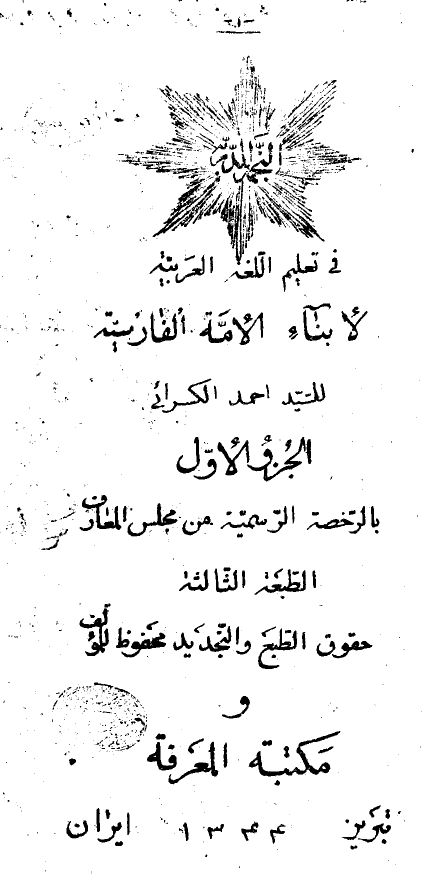 -١-
النجمة الدرية
في تعليم اللغة العربية
لابناء الامة الفارسية
للسيد احمد الكسرائي
الجزؤ الاول
بالرخصة الرسمية من مجلس المعارف
الطبعة الثالثة
حقوق الطبع والتجديد محفوظ للمؤلف
و
مكتبة المعرفة
تبريز ١٣٤٤ ايران